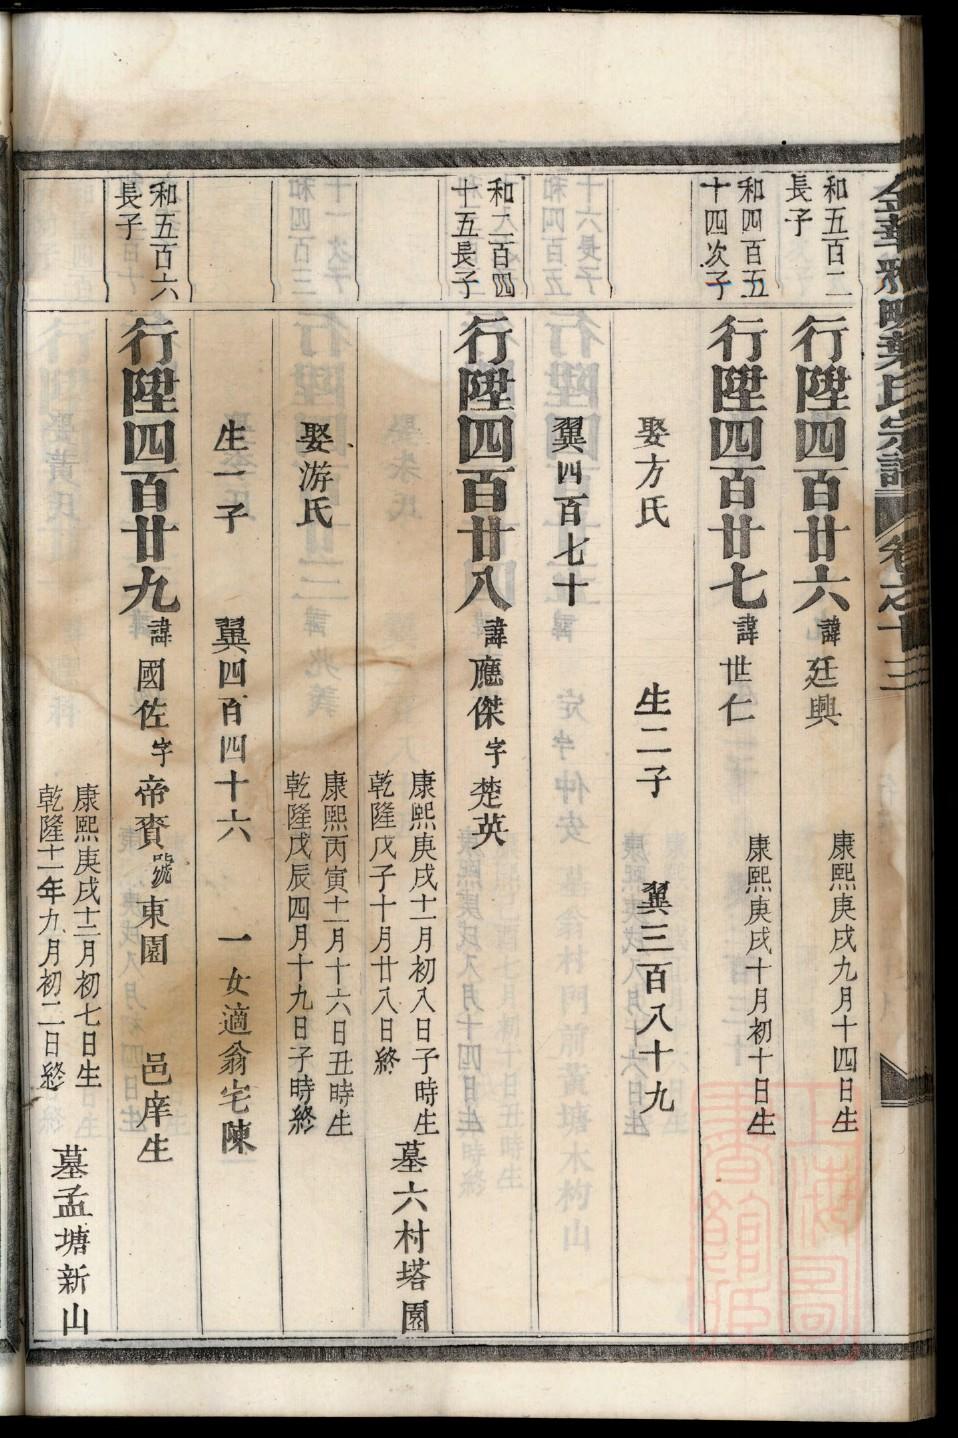 金華 葉氏宗譜 卷之十三
和五百二
長子
行陞四百廿六 諱廷興
康熙庚戌九月十四日生
和四百五
十四次子
行陞四百廿七 諱世仁
康熙庚戌十月初十日生
娶方氏 生二子 翼三百八十九
翼四百七十
和二百四
十五長子
行陞四百廿八 諱應傑 字楚英
康熙庚戌十二月初八日子時生
乾隆戊子十月廿八日終
墓六村塔園
娶游氏
康熙丙寅十一月十六日丑時生
乾隆戊辰四月十九日子時終
生一子 翼四百四十六 一女適翁宅陳
和五百六
長子
行陞四百廿九 諱國佐 字帝賚 號東園 邑庠生
康熙庚戌十二月初七日生
乾隆十一年九月初二日終
墓孟塘新山
上海圖書館藏